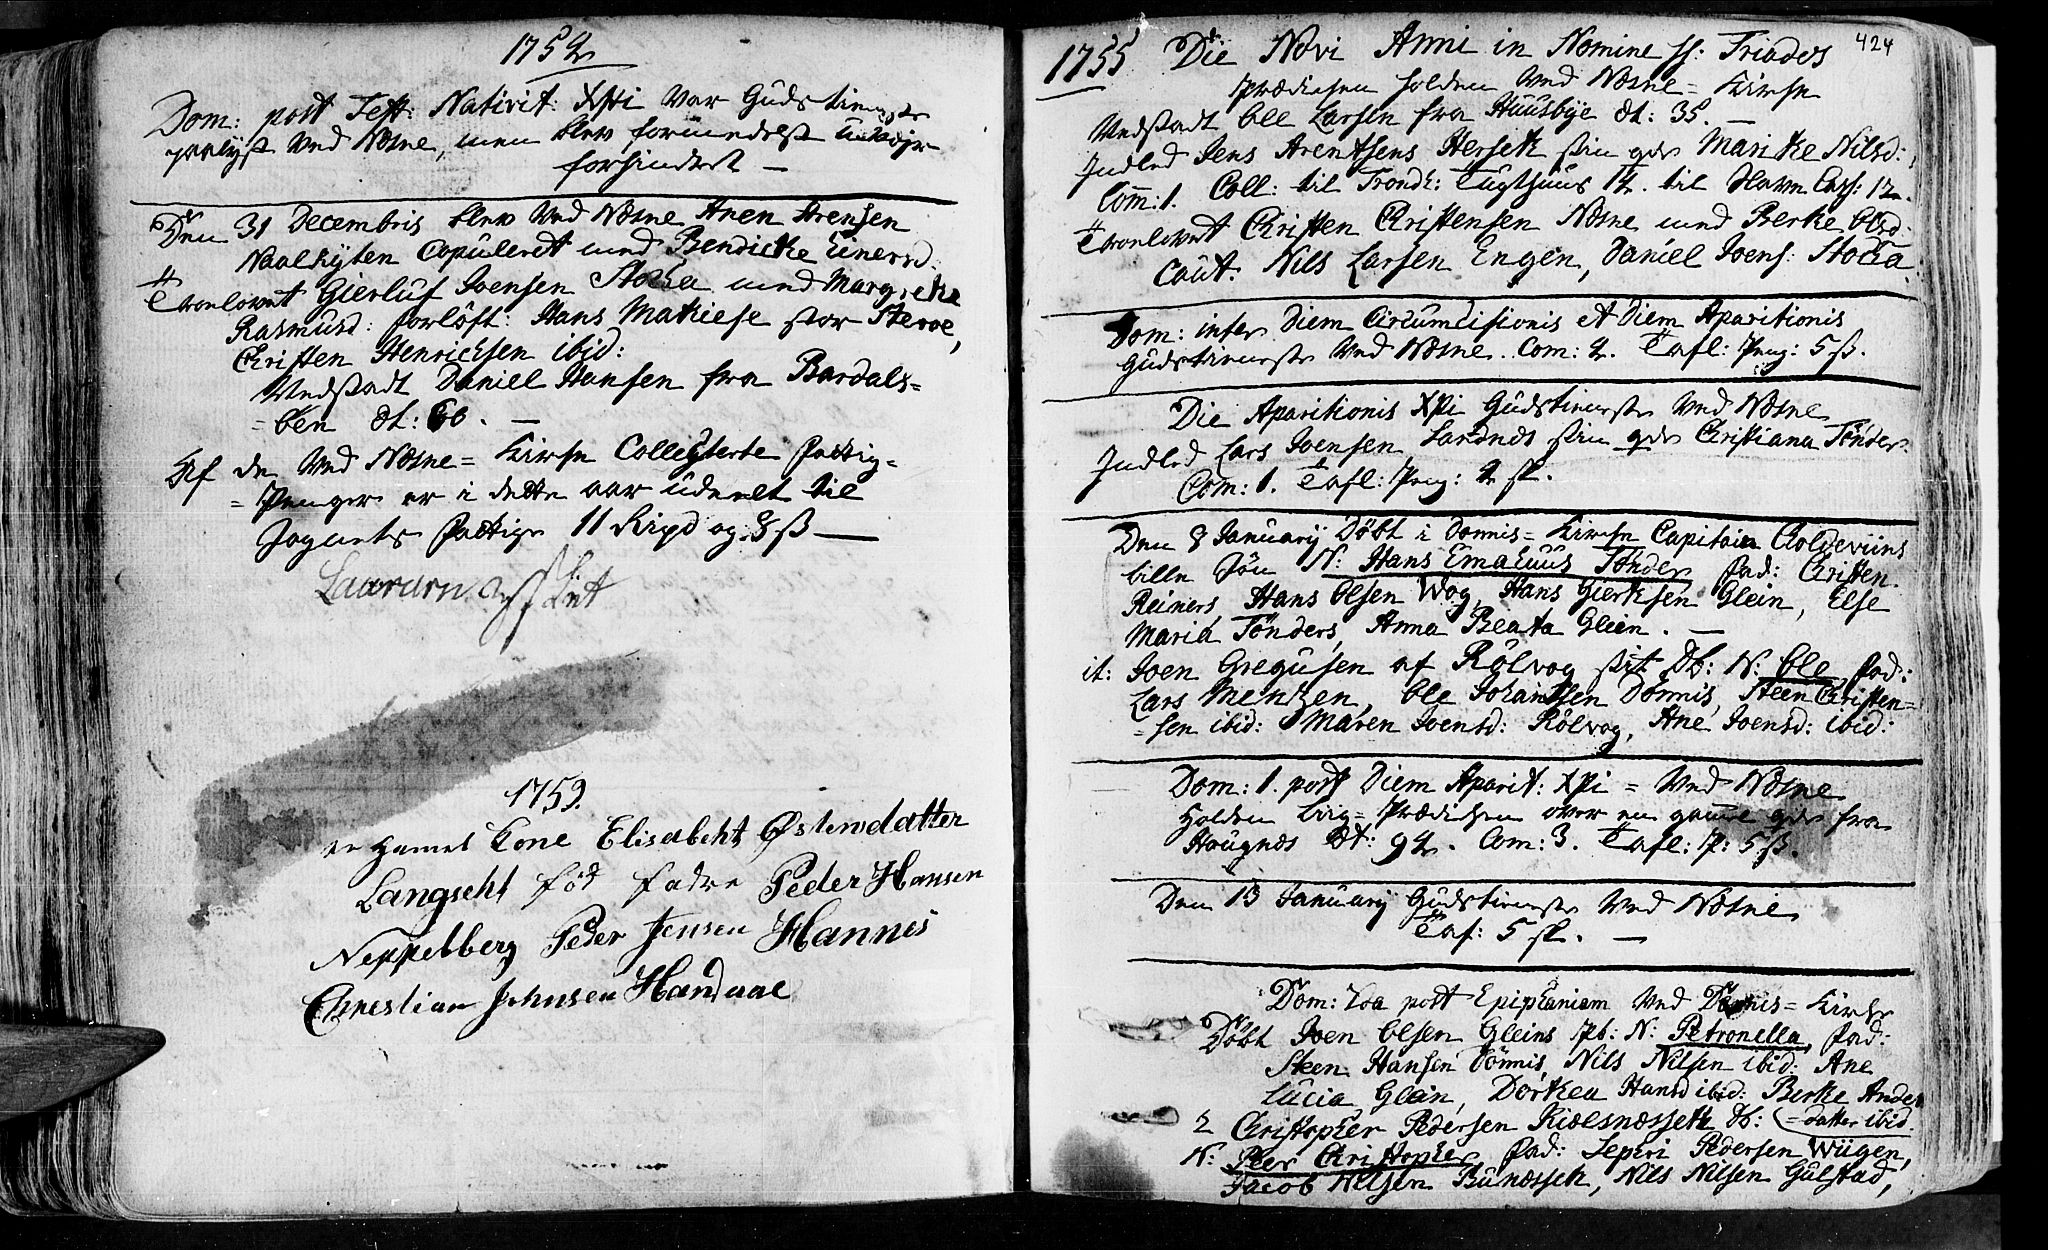 1754
Dom: post Fest: Nativit: Xpi var Gudstieneste
paalyst ved Næsne, men blev formedelst
forhindret —
Den 31 Decembris blev ved Næsne Anen Arensen
Naalhyten Copuleret med Bendicke Einersd:
Troelovet Gierluf Joensen Stocka med Margrete
Rasmusd: forlöft: Hans Mathiese stor Sterve,
Christen Henrichsen ibid:
Vedstadt Daniel Hansen fra Bardals=
=øen Æt: 60. —
Af de ved Næsne= Kirke Collecterte Fattig=
=Penger er i dette aar udeelt til
Sognets Fattige 11 Rixd og 8 ß —
1759.
Hamel Kone Elisabeht Østensdatter
Langseht fød fadre Peder Hansen
Neppelberg Peder Jensen Hannes
Christian Johnsen Handaae
424
1755 Die Novi Anni in Nomine SS: Triados
Prædiken holden ved Næsne= Kirke
Vedstadt Ole Larsen fra Huusbye Æt: 35. —
Indled Jens Arentsens Herseth sin qde Maritke Nilsd:
Com: 1. Coll: til Trondh: Tugthuus 14. til Havn 12.
Troelovet Christen Christensen Næsne med Berke Olsd:
Caut: Nils Larsen Engen, Daniel Joens: Stocka.
Dom: inter Diem Circumcisionis et Diem Aparitionis
Gudstieneste ved Næsne. Com: 4. Tafl: Peng: 5 ß.
Die Aparitionis Xpi Gudstieneste ved Næsne
Indled Lars Joensen Sandnes sin qde Christiana Tönder.
Com: 1. Tafl: Peng: 4 sk.
Den 8 January Döbt i Dönnis= Kirke Capitain Coldeviins
lille Sön N: Hans Emahuus Tönder Fad: Christen
Reiners, Hans Olsen Wog, Hans Gierksen Glein, Else
Maria Tönders, Anna Beata Glein. —
it: Joen Gregusen af Rölvog sit Db: N: Ole Fad:
Lars Mentzen, Ole Johansen Dönnis, Steen Christen=
=sen ibid: Maren Joensd: Rölvog, Ane Joensd: ibid:
Dom: 1. post Diem Aparit: Xpi = ved Næsne
Holden Liig= Prædicken over en gamel qde fra
Hougnes Æt: 94. Com: 3. Tafl: P: 5 ß.
Den 13 January Gudstieneste ved Næsne
Taf: 5 sk. —
Dom: 2da post Epiphaniam ved Dönnis= Kirke
Döbt Joen Olsen Gleins Pb: N: Petronella, Fad:
Steen Hansen Dönnis, Nils Nilsen ibid: Ane
Lucia Glein, Dorthea Hansd ibid: Berke Anders
=datter ibid.
2 Christopher Pedersen Kielsnæsseth Db:
N: Peer Christopher Fad: Sephri Pedersen Wügen,
Jacob Nilsen Bunesseth, Nils Nilsen Gulstad,